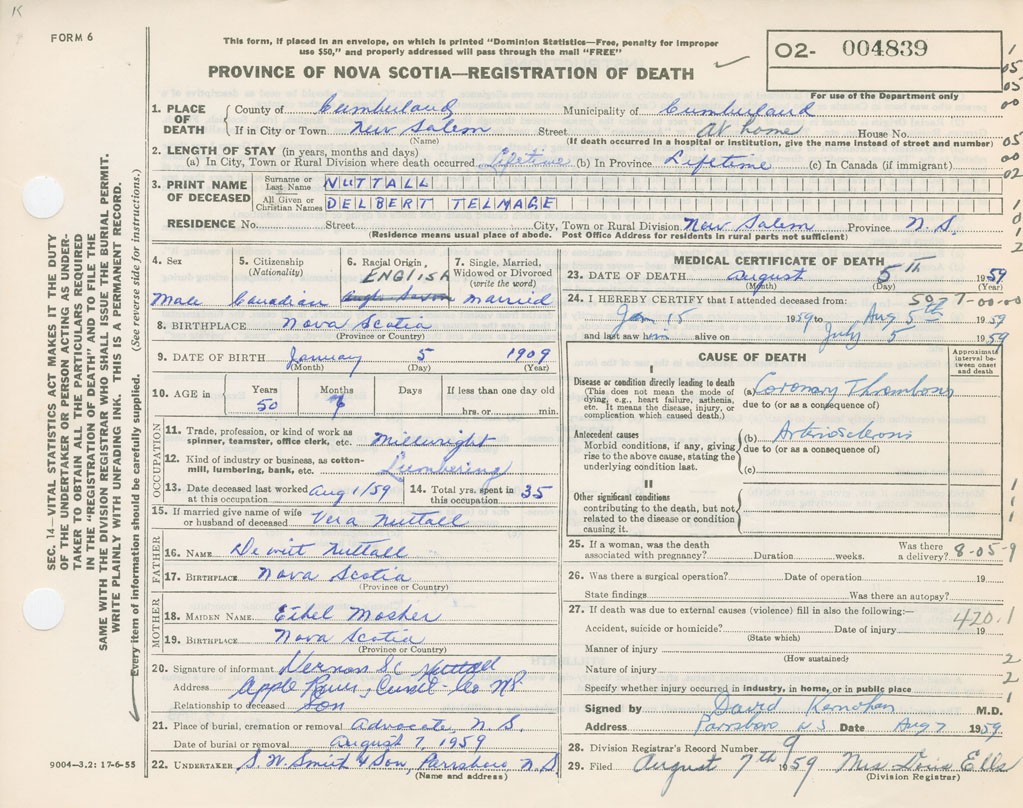 K
FORM 6
This form, if placed in an envelope, on which is printed "Dominion Statistics—Free, penalty for improper
use $50," and properly addressed will pass through the mail "FREE"
PROVINCE OF NOVA SCOTIA—REGISTRATION OF DEATH
02- 004839
For use of the Department only
SEC. 14—VITAL STATISTICS ACT MAKES IT THE DUTY
OF THE UNDERTAKER OR PERSON ACTING AS UNDER-
TAKER TO OBTAIN ALL THE PARTICULARS REQUIRED
IN THE "REGISTRATION OF DEATH" AND TO FILE THE
SAME WITH THE DIVISION REGISTRAR WHO SHALL ISSUE THE BURIAL PERMIT.
WRITE PLAINLY WITH UNFADING INK. THIS IS A PERMANENT RECORD.
Every item of information should be carefully supplied. (See reverse side for instructions.)
1. PLACE OF DEATH County of Cumberland Municipality of Cumberland
If in City or Town New Salem Street At home House No.
(Name) (If death occurred in a hospital or institution, give the name instead of street and number)
2. LENGTH OF STAY (in years, months and days)
(a) In City, Town or Rural Division where death occurred Lifetime (b) In Province Lifetime (c) In Canada (if immigrant)
3. PRINT NAME OF DECEASED Surname or Last Name NUTTALL
All Given or Christian Names DELBERT TELMAGE
RESIDENCE No. Street City, Town or Rural Division New Salem Province N.S.
(Residence means usual place of abode. Post Office Address for residents in rural parts not sufficient)
4. Sex Male
5. Citizenship (Nationality) Canadian
6. Racial Origin ENGLISH
7. Single, Married, Widowed or Divorced (write the word) Married
8. BIRTHPLACE Nova Scotia
(Province or Country)
9. DATE OF BIRTH January 5 1909
(Month) (Day) (Year)
10. AGE in Years 50 Months 6 Days If less than one day old hrs. or min.
OCCUPATION
11. Trade, profession, or kind of work as spinner, teamster, office clerk, etc. Millwright
12. Kind of industry or business, as cotton-mill, lumbering, bank, etc. Lumbering
13. Date deceased last worked at this occupation Aug 1/59 14. Total yrs. spent in this occupation 35
15. If married give name of wife or husband of deceased Vera Nuttall
FATHER
16. NAME Dewitt Nuttall
17. BIRTHPLACE Nova Scotia
(Province or Country)
MOTHER
18. MAIDEN NAME Ethel Mosher
19. BIRTHPLACE Nova Scotia
(Province or Country)
20. Signature of informant Vernon Nuttall
Address Apple River, Co NS.
Relationship to deceased Son
21. Place of burial, cremation or removal Advocate, N.S.
Date of burial or removal August 7, 1959
22. UNDERTAKER S.W. Smith & Son, Parrsboro N.S
(Name and address)
9004—3.2: 17-6-55
MEDICAL CERTIFICATE OF DEATH
23. DATE OF DEATH August 5th 1959
(Month) (Day) (Year)
24. I HEREBY CERTIFY that I attended deceased from: 50 7-00-00
Jan 15 1959 to Aug 5th 1959
and last saw him alive on July 5 1959
CAUSE OF DEATH
Approximate interval between onset and death
I
Disease or condition directly leading to death
(This does not mean the mode of dying, e.g., heart failure, asthenia, etc. It means the disease, injury, or complication which caused death.)
(a) Coronary Thrombosis
due to (or as a consequence of)
Antecedent causes
Morbid conditions, if any, giving rise to the above cause, stating the underlying condition last.
(b) Arteriosclerosis
due to (or as a consequence of)
(c)
II
Other significant conditions
contributing to the death, but not related to the disease or condition causing it.
25. If a woman, was the death associated with pregnancy? Duration weeks. Was there a delivery? 8-05-9
26. Was there a surgical operation? Date of operation 19
State findings Was there an autopsy?
27. If death was due to external causes (violence) fill in also the following:—
420.1
Accident, suicide or homicide? Date of injury 19
(State which)
Manner of injury
(How sustained)
Nature of injury
Specify whether injury occurred in industry, in home, or in public place
Signed by David Kernohan M.D.
Address Parrsboro NS Date Aug 7 1959
28. Division Registrar's Record Number 9
29. Filed August 7th 1959 Mrs Doris Ells
(Division Registrar)
1
05
05
00
05
00
02
1
0
1
2
1
1
1
2
2
1